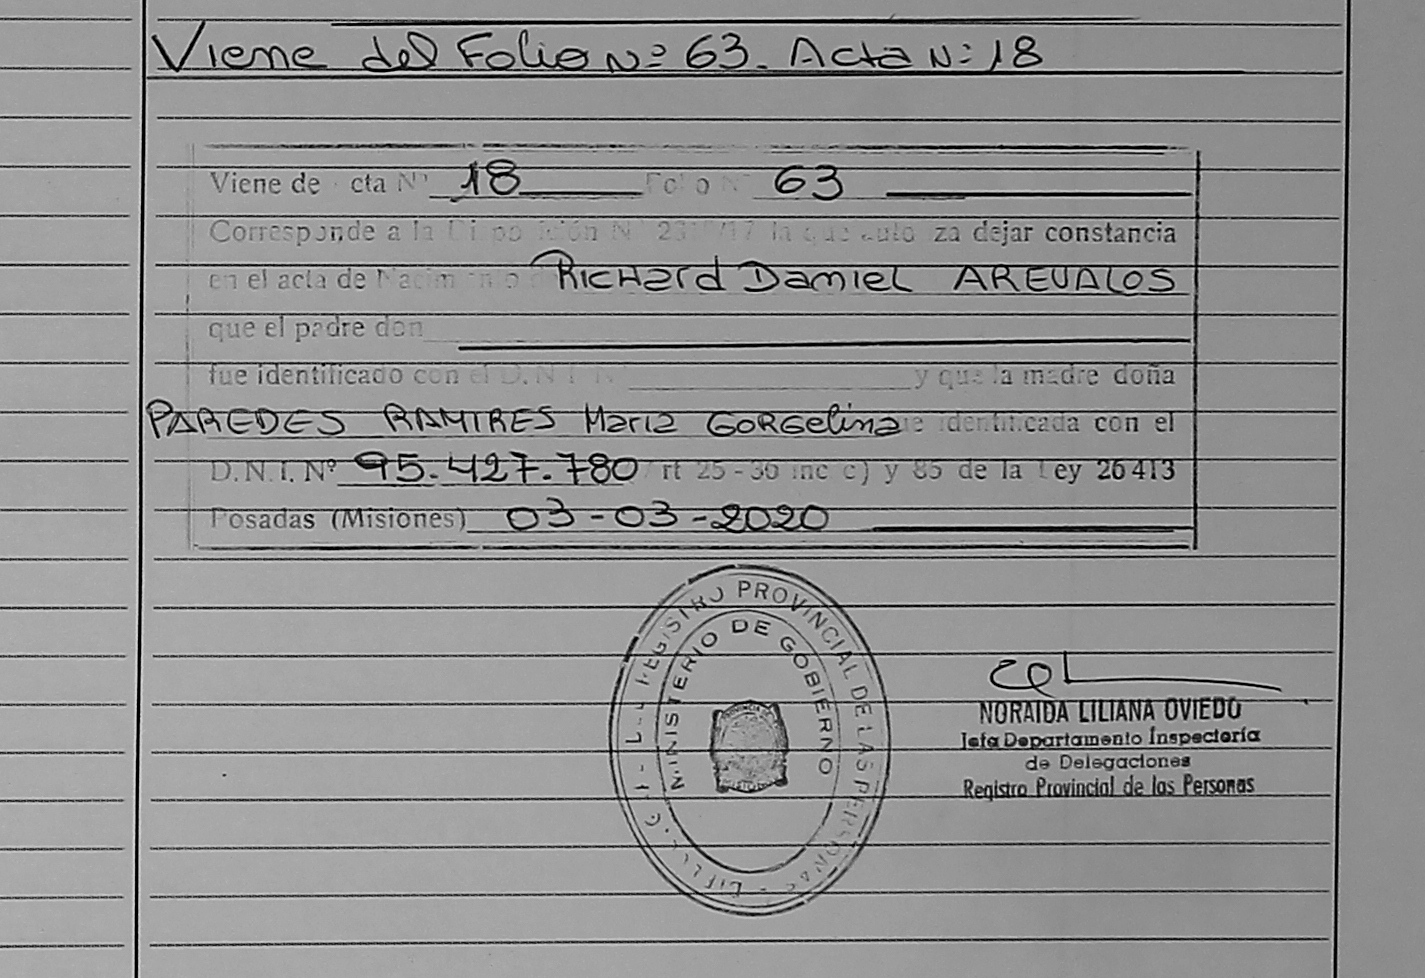 Viene del Folio Nº 63. Acta Nº 18
Viene de cta Nº 18 Folio N 63
Corresponde a la la que za dejar constancia
en el acta de RicHard Daniel AREVALOS
que el padre don
fue identificado con el D.N.I. Nº y que la madre doña
PAREDES RAMIRES Maria GORGelina identificada con el
D.N.I. Nº 95.427.780 rt 25-36 inc c) y 85 de la Ley 26413
Posadas (Misiones) 03-03-2020
REGISTRO PROVINCIAL DE LAS PERSONAS
MINISTERIO DE GOBIERNO
NORAIDA LILIANA OVIEDO
Jefa Departamento Inspectoría
de Delegaciones
Registro Provincial de las Personas